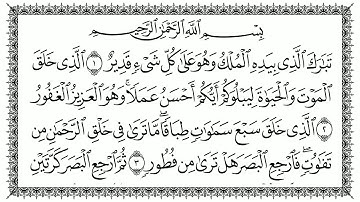 بِسْمِ اللَّهِ الرَّحْمَٰنِ الرَّحِيمِ
تَبَٰرَكَ ٱلَّذِى بِيَدِهِ ٱلْمُلْكُ وَهُوَ عَلَىٰ كُلِّ شَىْءٍ قَدِيرٌ ۝١ ٱلَّذِى خَلَقَ
ٱلْمَوْتَ وَٱلْحَيَوٰةَ لِيَبْلُوَكُمْ أَيُّكُمْ أَحْسَنُ عَمَلًا ۚ وَهُوَ ٱلْعَزِيزُ ٱلْغَفُورُ
۝٢ ٱلَّذِى خَلَقَ سَبْعَ سَمَٰوَٰتٍ طِبَاقًا ۖ مَّا تَرَىٰ فِى خَلْقِ ٱلرَّحْمَٰنِ مِن
تَفَٰوُتٍ ۖ فَٱرْجِعِ ٱلْبَصَرَ هَلْ تَرَىٰ مِن فُطُورٍ ۝٣ ثُمَّ ٱرْجِعِ ٱلْبَصَرَ كَرَّتَيْنِ